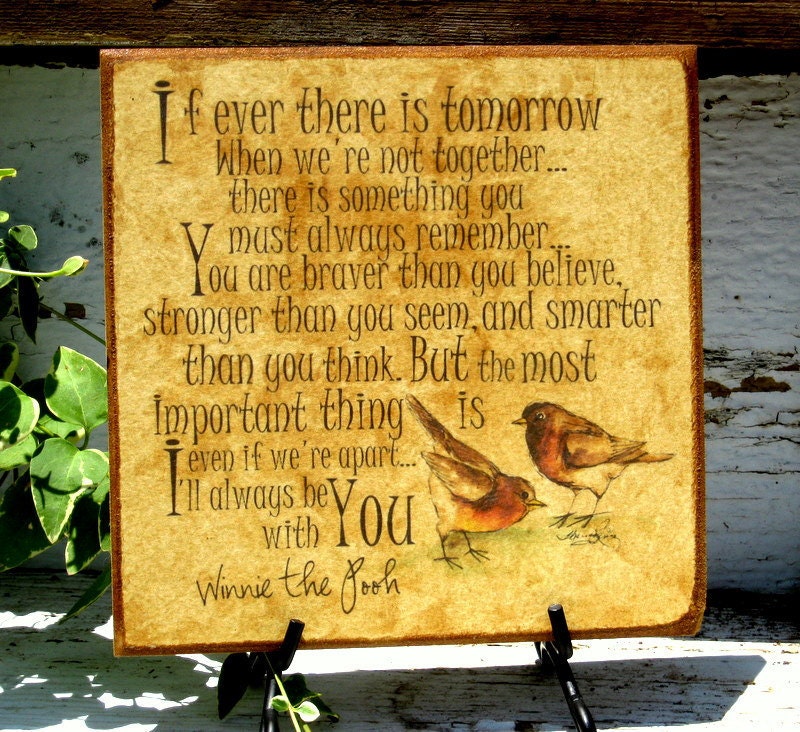 If ever there is tomorrow
When we're not together...
there is something you
must always remember...
You are braver than you believe,
stronger than you seem, and smarter
than you think. But the most
important thing is
even if we're apart...
I'll always be
with You
Winnie the Pooh